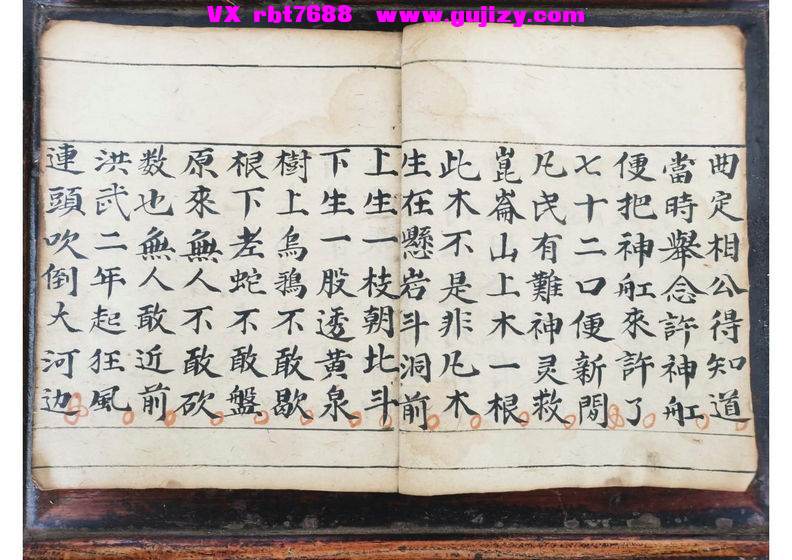 VX rbt7688 www.gujizy.com
曲定相公得知道
當時舉念許神舡
便把神舡來許了
七十二口便新閙
凡民有難神灵救
崑崙山上木一根
此木不是非凡木
生在懸岩斗洞前
上生一枝朝北斗
下生一股透黄泉
樹上烏鴉不敢歇
根下老蛇不敢盤
原來無人不敢砍
数也無人敢近前
洪武二年起狂風
連頭吹倒大河边